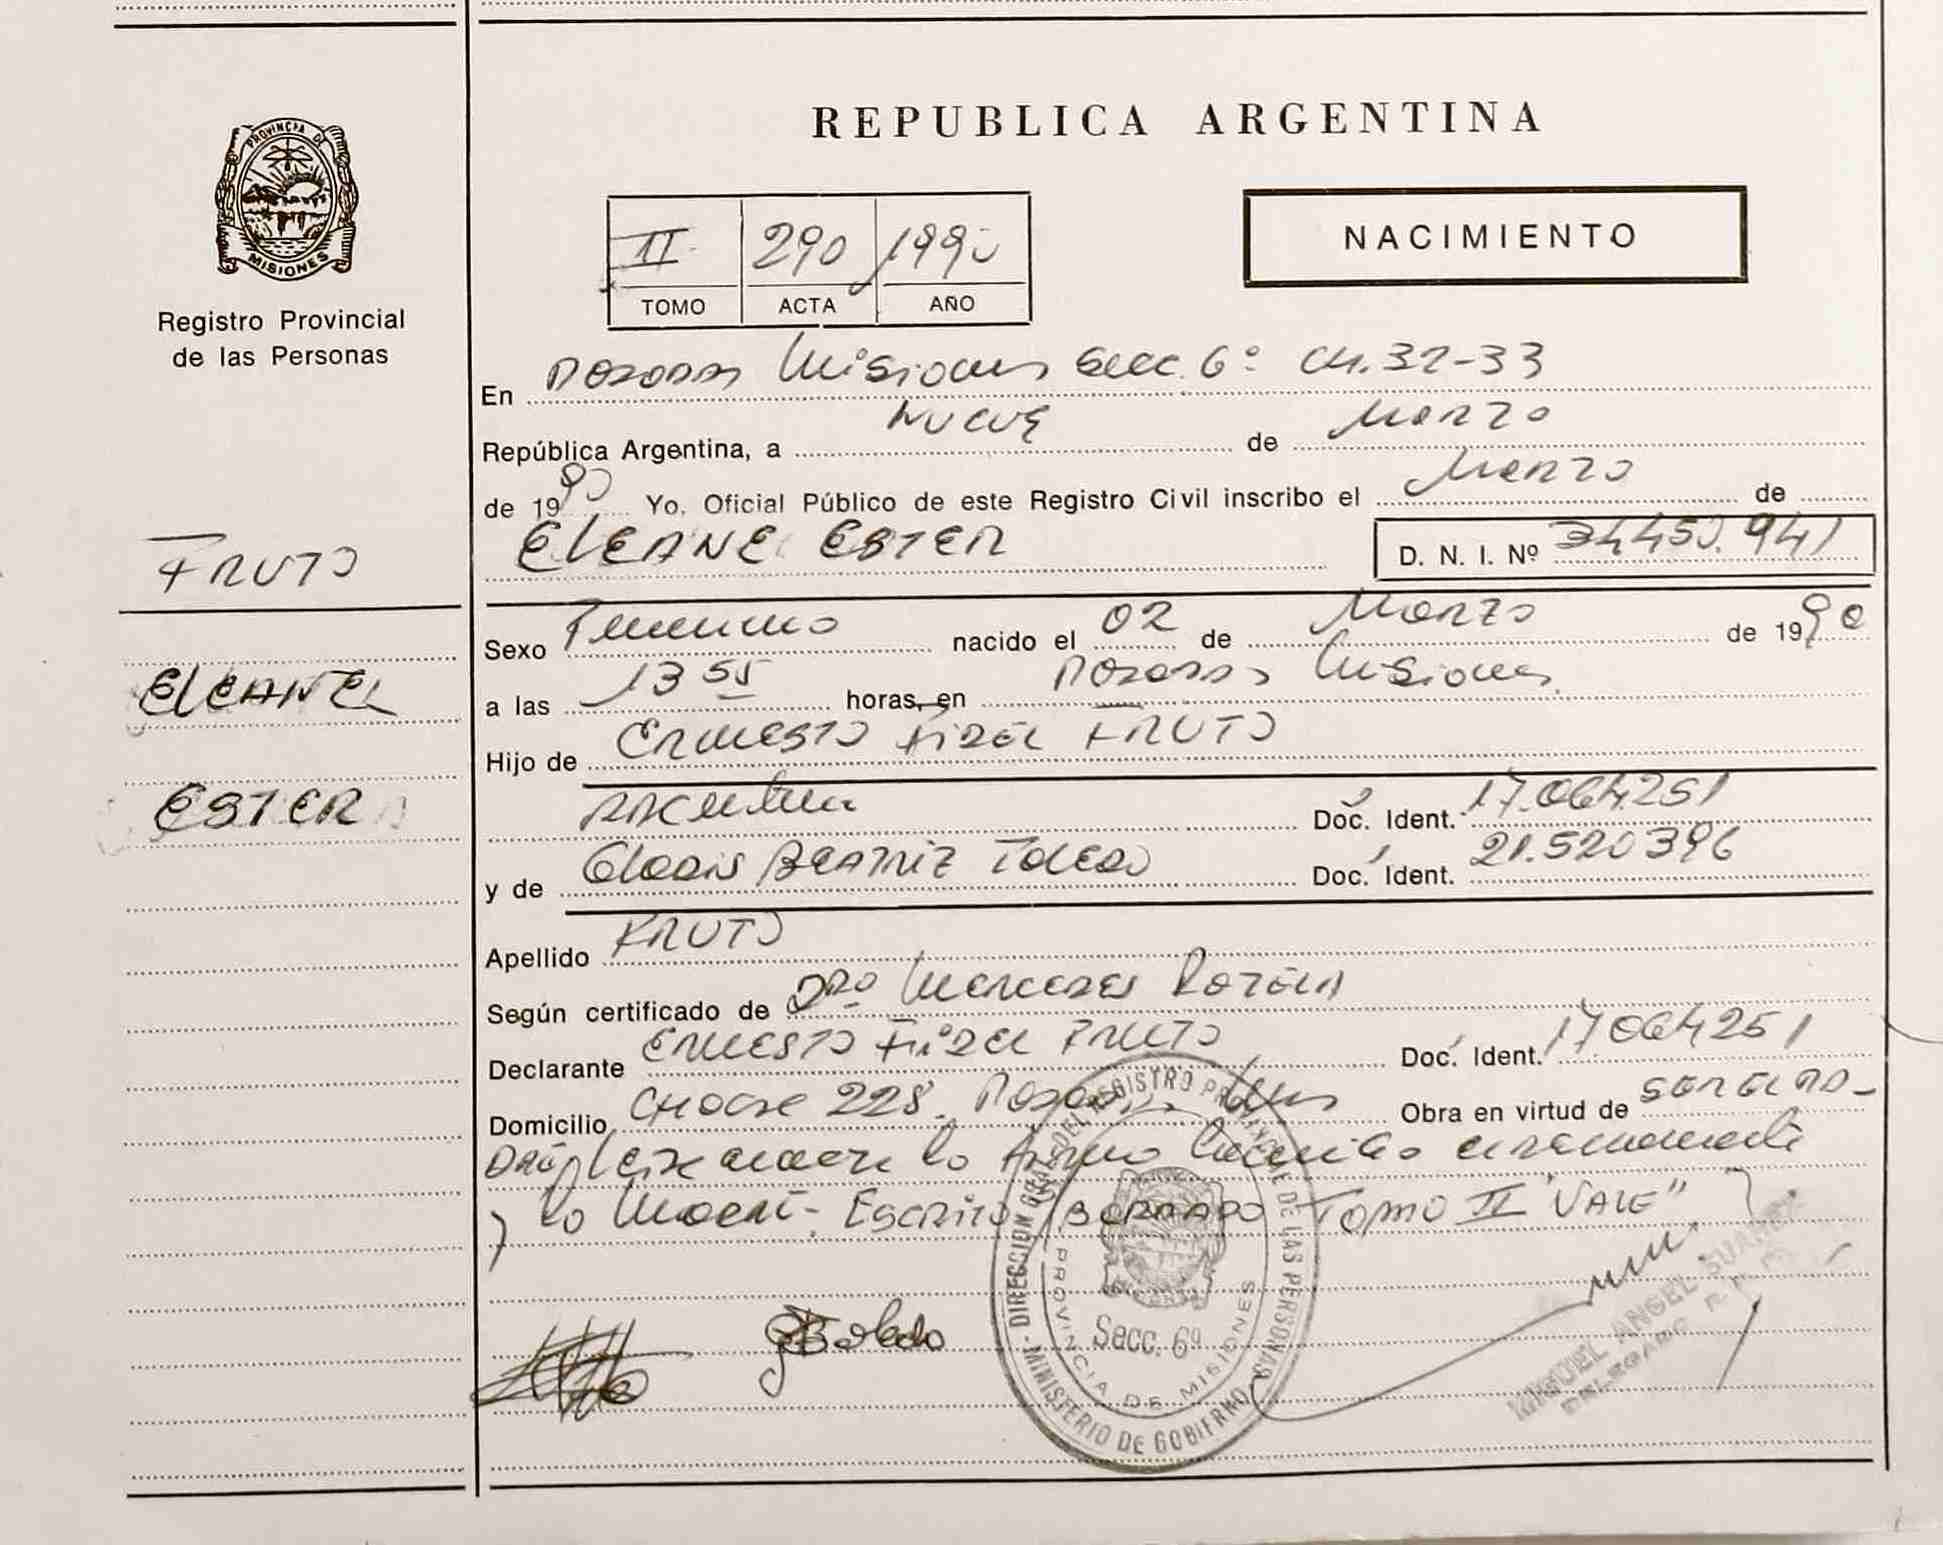 PROVINCIA DE
MISIONES
Registro Provincial
de las Personas
FRUTO
ELEANE
ESTER
REPUBLICA ARGENTINA
NACIMIENTO
II 290 1990
TOMO ACTA AÑO
En Posadas Misiones Secc. 6º CH.32-33
República Argentina, a Nueve de Marzo
de 1990 Yo, Oficial Público de este Registro Civil inscribo el Marzo de
ELEANE ESTER D. N. I. Nº 34450.941
Sexo Femenino nacido el 02 de Marzo de 1990
a las 13 55 horas, en Posadas Misiones
Hijo de Ernesto Fidel FRUTO
Argentina Doc. Ident. 17.064.251
y de Gladis Beatriz Toledo Doc. Ident. 21.520396
Apellido FRUTO
Según certificado de Dra Mercedes
Declarante Ernesto Fidel Fruto Doc. Ident. 17064251
Domicilio Chacra 228. Posadas Mnes Obra en virtud de
lo
lo Escrito Tomo II "VALE"
DIRECCION GRAL. DEL REGISTRO PROVINCIAL DE LAS PERSONAS
MINISTERIO DE GOBIERNO
PROVINCIA DE MISIONES
Secc. 6ª
MIGUEL ANGEL SUAREZ
DELEGADO